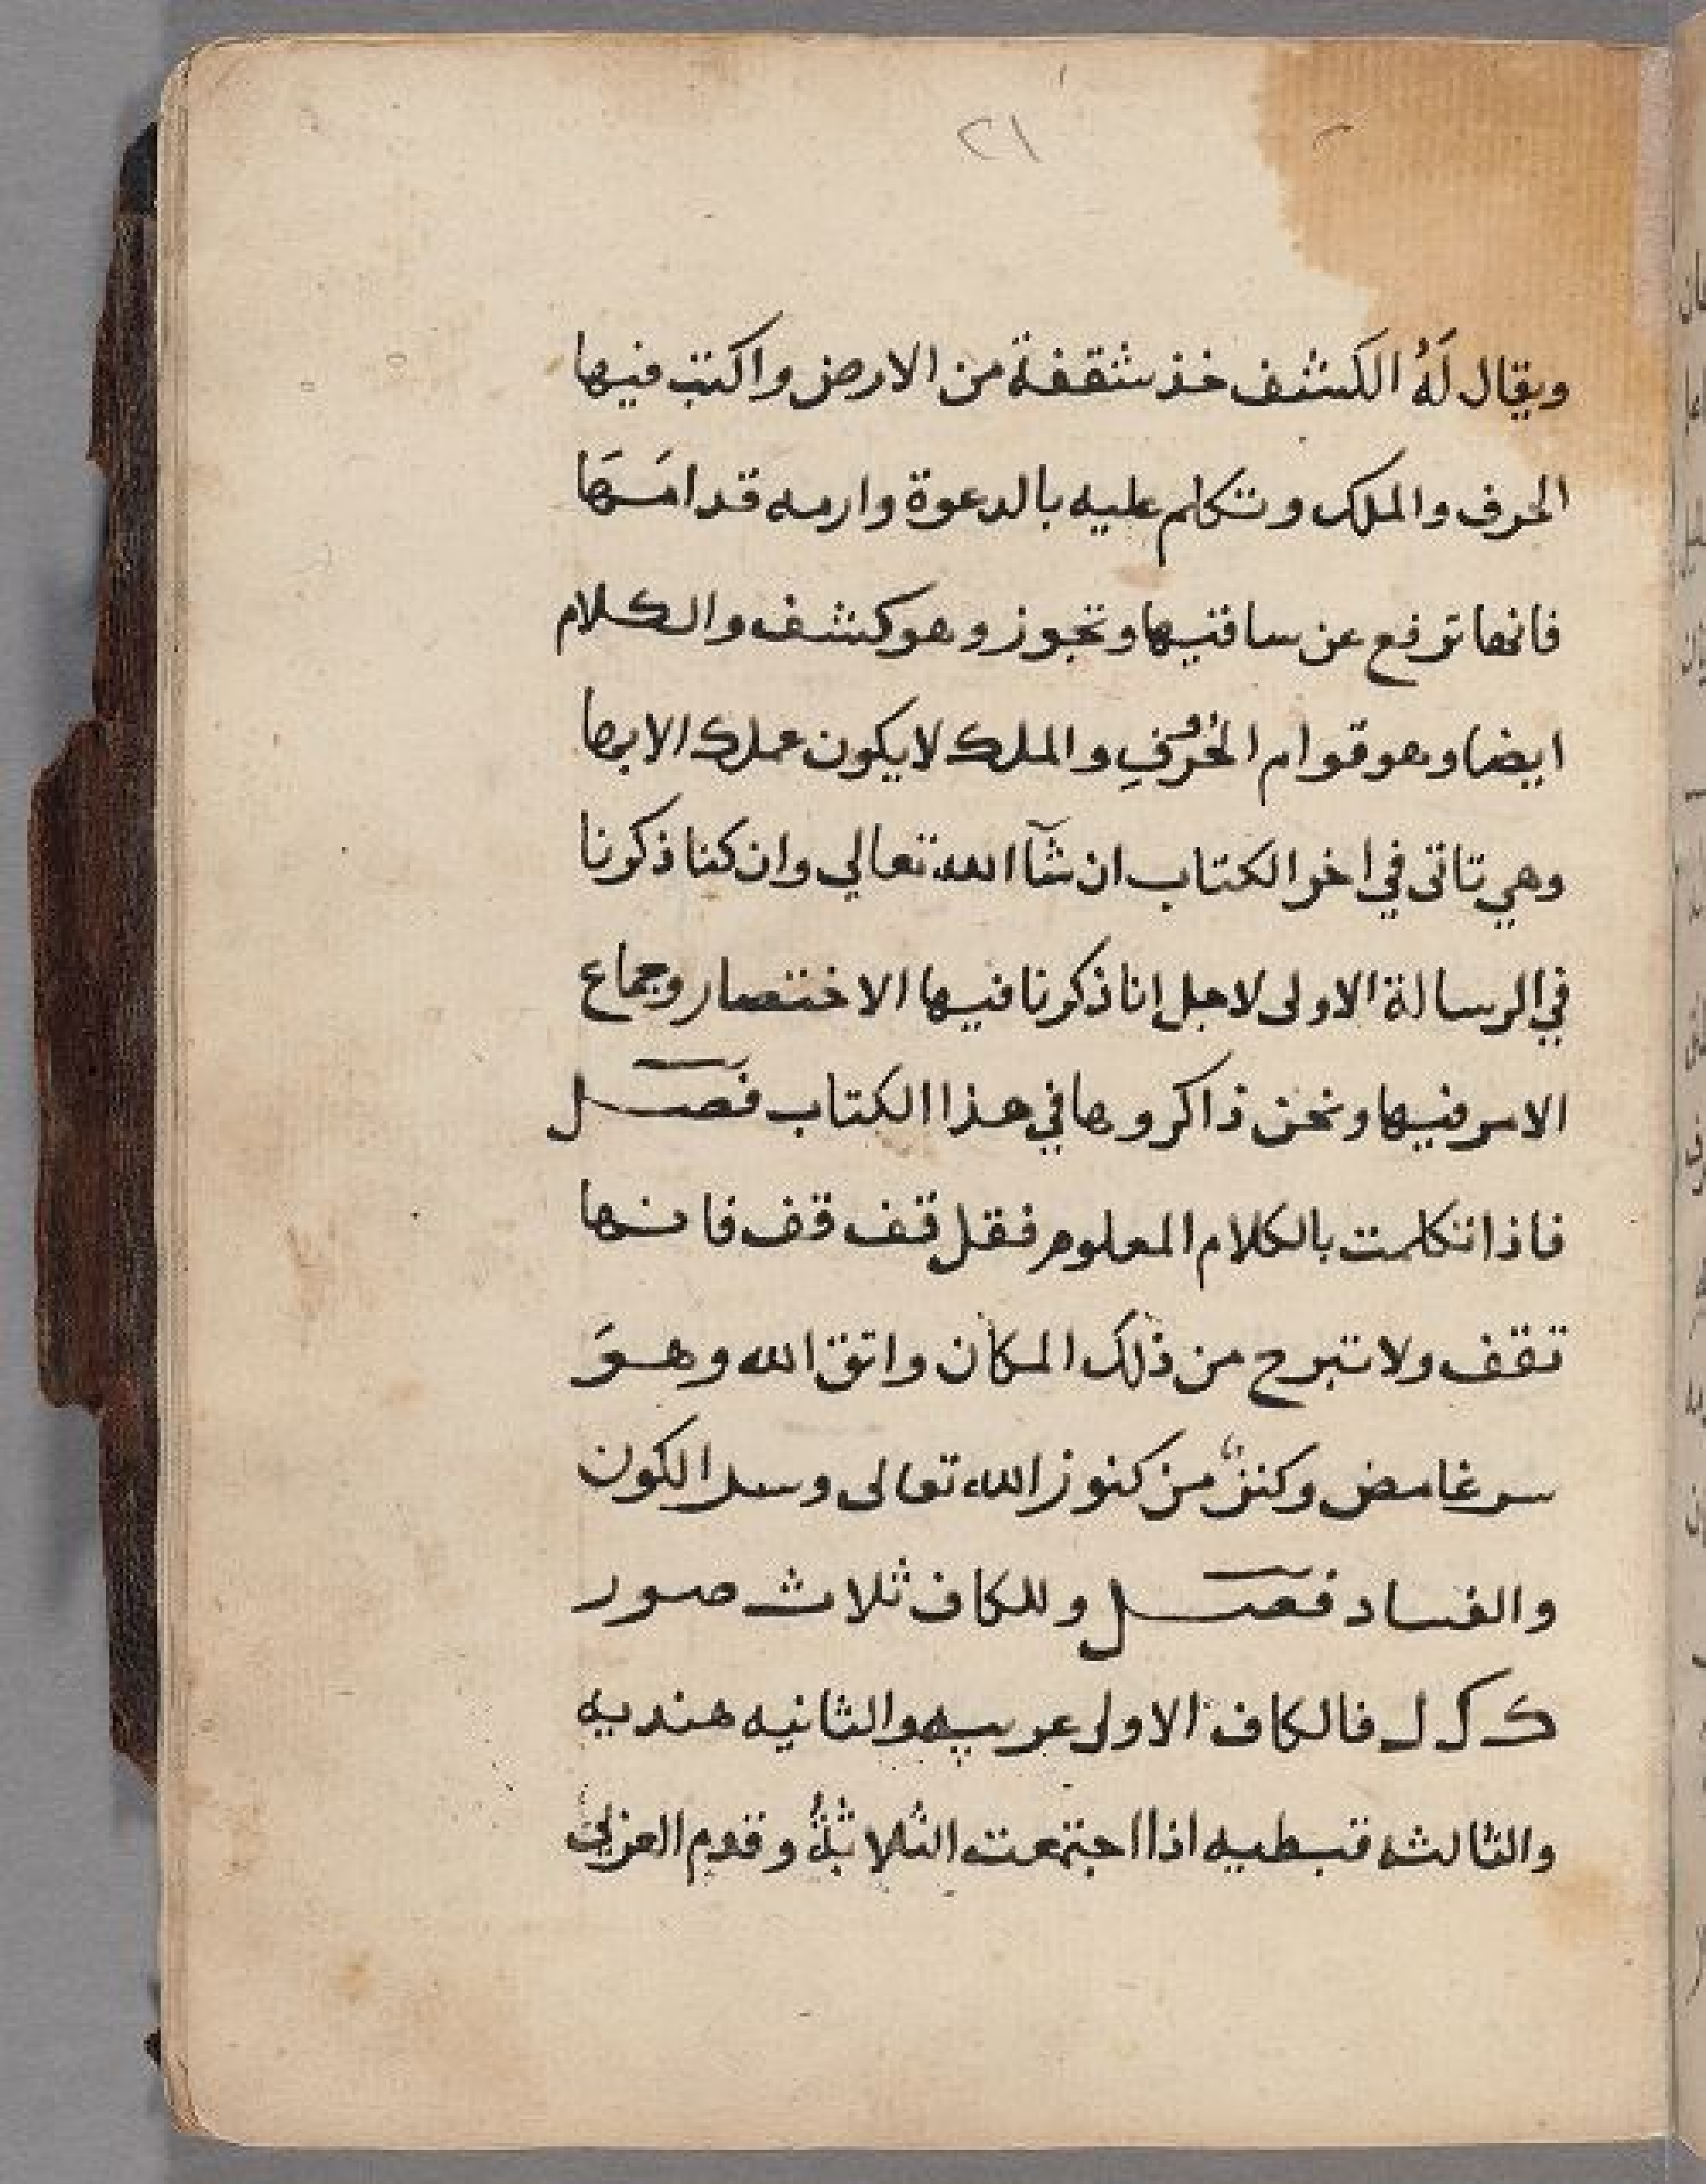 ٢١
ويقال لَهُ الكَشف خذ شقفة من الارض واكتب فيها
الحرف والملك وتكلم عليه بالدعوة وارمه قدامَهَا
فانها ترفع عن ساقيها وتجوز وهو كشف والكلام
ايضا وهو قوام الحُرُوفِ والملك لا يكون عملك الا بها
وهي تاتى في اخر الكتاب ان شآ الله تعالي وان كنا ذكرنا
في الرسالة الاولى لاجل انا ذكرنا فيها الاختصار وجماع
الامر فيها ونحن ذاكروها في هذا الكتاب فصل
فاذا تكلمت بالكلام المعلوم فقل قف قف فانها
تقف ولا تبرح من ذلك المكان واتق الله وهوَ
سر غامض وكنز من كنوز الله تعالى وسر الكون
والفساد فصل وللكاف ثلاث صور
ك فالكاف الاولى عربيه والثانيه هنديه
والثالثه قبطيه اذا اجتمعت الثلاثة وقدم